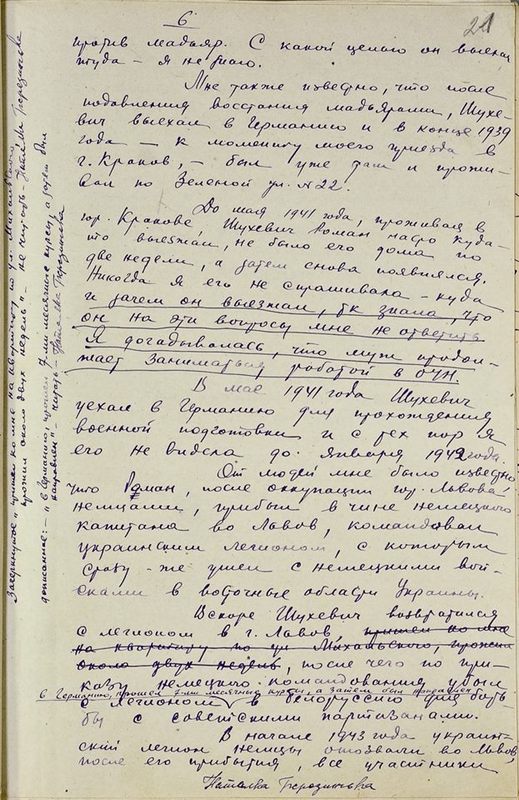 6
21
против мадьяр. С какой целью он выехал
туда – я не знаю.
Мне также известно, что после
подавления восстания мадьярами, Шухе-
вич выехал в Германию и в конце 1939
года – к моменту моего приезда в
г. Краков, – был уже там и прожи-
вал по Зеленой ул. № 22.
До мая 1941 года, проживая в
гор. Кракове, Шухевич Роман часто куда-
то выезжал, не было его дома по
две недели, а затем снова появлялся.
Никогда я его не спрашивала – куда
и зачем он выезжал, т.к. знала, что
он на эти вопросы мне не ответит.
Я догадывалась, что муж продол-
жает заниматься работой в ОУН.
В мае 1941 года Шухевич
уехал в Германию для прохождения
военной подготовки и с тех пор я
его не видела до января 1942 года.
От людей мне было известно
что Роман, после оккупации гор. Львова
немцами, прибыл в чине немецкого
капитана во Львов, командовал
украинским легионом, с которым
сразу-же ушел с немецкими вой-
сками в восточные области Украины.
Вскоре Шухевич возвратился
с легионом в г. Львов, пришел ко мне
на квартиру по ул. Михальского, прожил
около двух недель, после чего по при-
казу немецкого командования убыл
в Германию, прошел 7-ми месячные курсы, а затем был направлен
с легионом в Белоруссию для борь-
бы с советскими партизанами.
В начале 1943 года украин-
ский легион немцы отозвали во Львов,
после его прибытия, все участники
Наталка Березинська
Зачеркнутое „пришел ко мне на квартиру по ул. Михальского
прожил около двух недель" – не читать – Наталка Березинська
дописанное: – „в Германию, прошел 7-ми месячные курсы, а затем был
направлен" – читать – Наталка Березинська